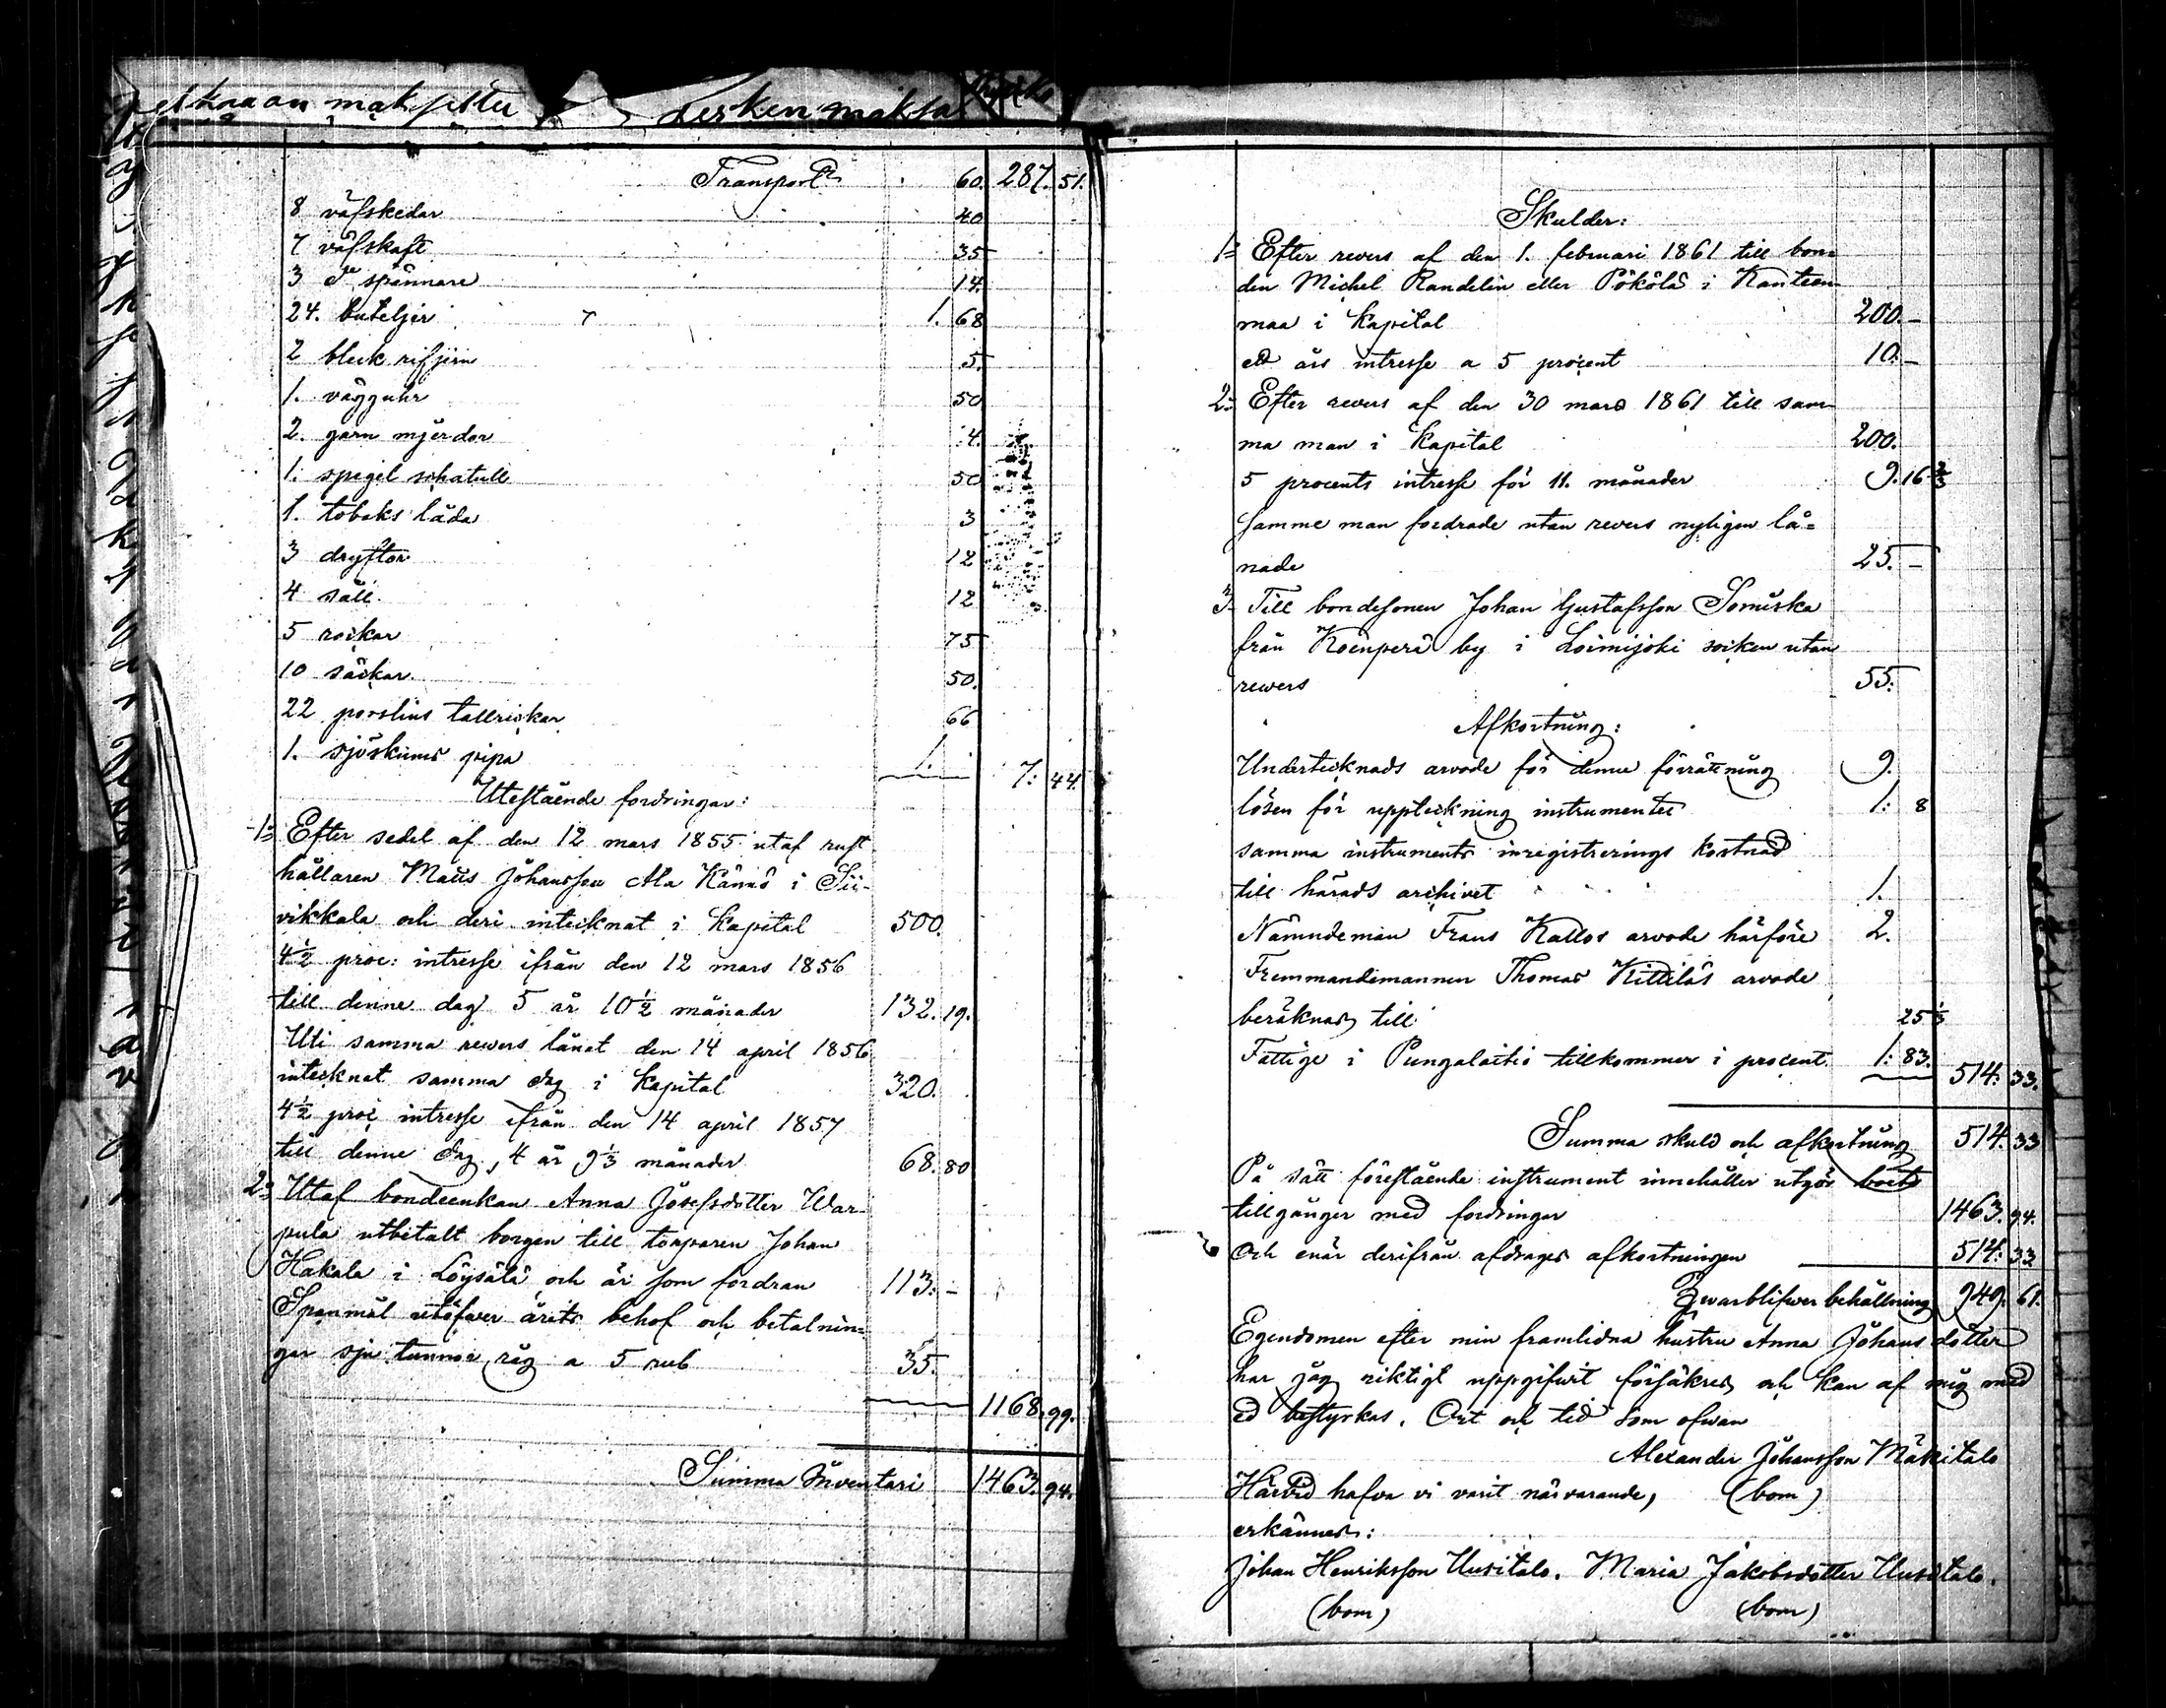 Transport 60. 287. 51.
8 väfskedar 40
7 väfskaft 35
3 do spännare 14.
24. buteljer 1. 68
2 bleck rifjern 5.
1. vägguhr 50
2. garn mjerdor 4.
1. spegel schatull 50
1. tobaks låda 3
3 dryftor 12
4 såll. 12
5 rockar 75
10 säckar 50.
22 porslins tallrickar 66
1. sjöskums pipa 1. 7: 44.
Utestående fordringar:
1o Efter sedel af den 12 mars 1855 utaf rust
hållaren Matts Johansson Ala Kännö i Sii-
vikkala och deri intecknat i Kapital 500.
4½ proc: intresse ifrån den 12 mars 1856
till denne dag 5 år 10½ månader 132. 19.
Uti samma revers lånat den 14 april 1856
intecknat samma dag i Kapital 320.
4½ proc intresse ifrån den 14 april 1857
till denne dag, 4 år 9⅓ månader 68. 80
2o Utaf bondeenkan Anna Josefsdotter War-
pula utbetalt borgen till torparen Johan
Hakala i Löysälä och är som fordran 113: –
Spanmål utöfver årets behof och betalnin=
gar sju tunnor råg a 5 rub 35.
1168. 99.
Summa Inventari 1463. 94.
Skulder:
1o Efter revers af den 1. februari 1861 till bon=
den Michel Randelin eller Pökölä i Kanteen
maa i Kapital 200. –
ett års intresse a 5 procent 10. –
2o Efter revers af den 30 mars 1861 till sam
ma man i Kapital 200.
5 procents intresse för 11. månader 9. 16⅔
Samme man fordrade utan revers nyligen lå=
nade 25. –
3o Till bondesonen Johan Gustafsson
från by i Loimijoki socken utan
revers 55:
Afkortning:
Undertecknads arvode för denne förrättning 9.
lösen för uppteckning instrumentet 1: 8
samma instruments inregistrerings kostnad
till härads archivet 1.
Nämndeman Frans Kallos arvode härföre 2.
Fremmandemannen Thomas Kittiläs arvode
beräknas till 25⅓
Fattige i Pungalaitio tillkommer i procent. 1: 83. 514: 33.
Summa skuld och afkortning 514. 33
På sätt förestående instrument innehåller utgör boets
tillgånger med fordringar 1463. 94.
Och enär derifrån afdrages afkortningen 514: 33
Qvarblifver behållning 949. 61.
Egendomen efter min framlidna hustru Anna Johansdotter
har jag riktigt uppgifvit försäkras och kan af mig med
ed bestyrkas. Ort och tid som ofvan
Alexander Johansson Mäkitalo
Härvid hafva vi varit närvarande, (bom)
erkännes:
Johan Henriksson Uusitalo. Maria Jakobsdotter Uusitalo.
(bom) (bom)